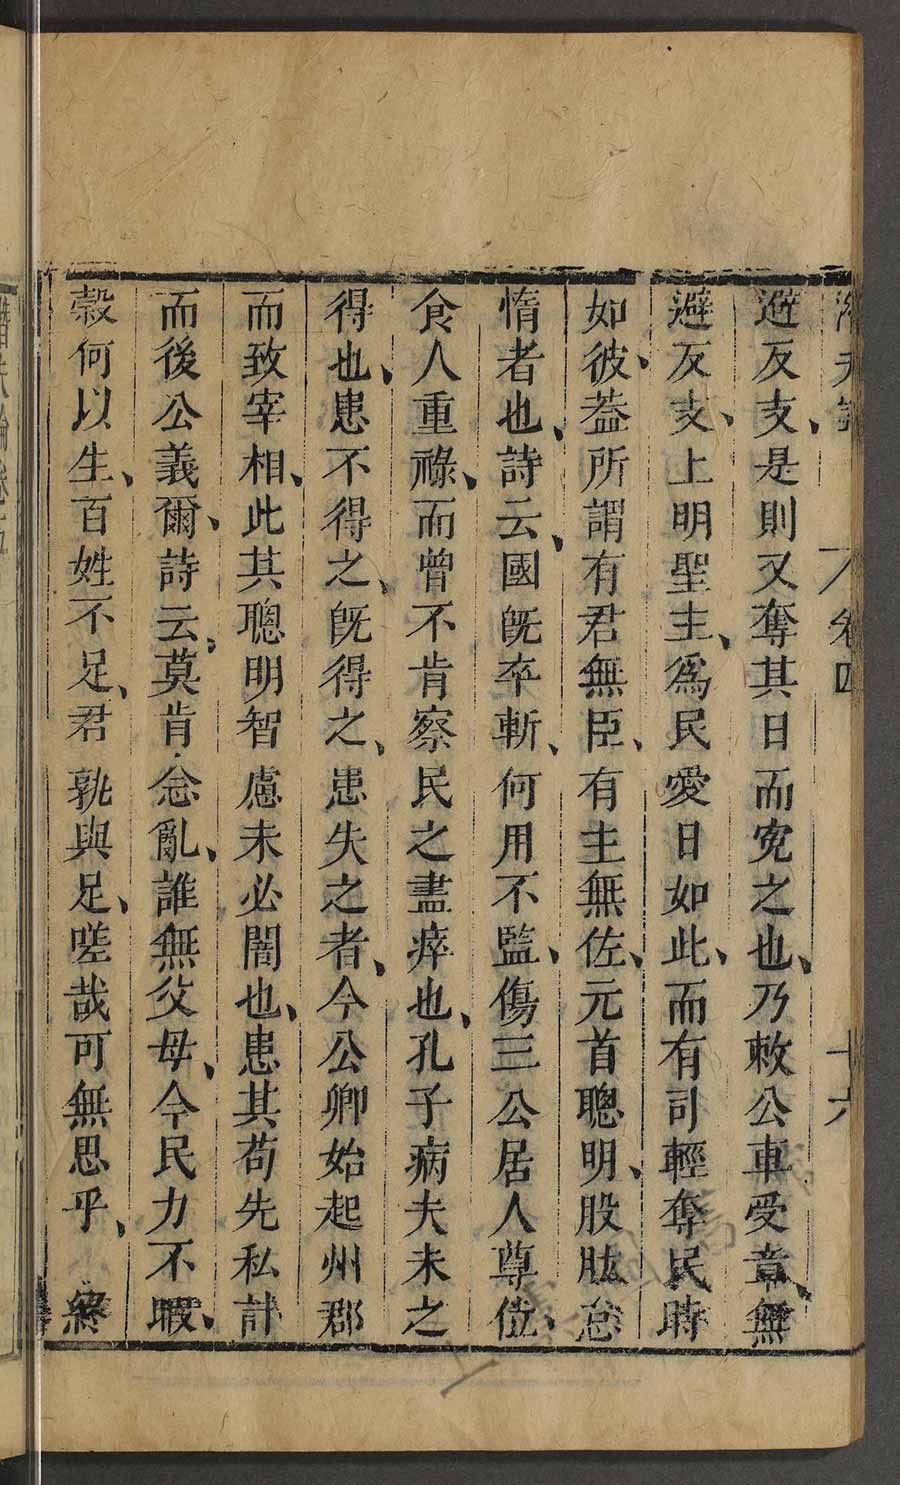 潛夫論 卷四 十六
避反支、是則又奪其日而寃之也、乃敕公車受章、無
避反支、上明聖主、爲民愛日如此、而有司輕奪民時
如彼、葢所謂有君無臣、有主無佐、元首聰明、股肱怠
惰者也、詩云、國旣卒斬、何用不監、傷三公居人尊位、
食人重祿、而曾不肯察民之盡瘁也、孔子病夫未之
得也、患不得之、旣得之、患失之者、今公卿始起州郡
而致宰相、此其聰明智慮未必闇也、患其苟先私計
而後公義爾、詩云、莫肯念亂、誰無父母、今民力不暇、
穀何以生、百姓不足、君孰與足、嗟哉可無思乎、 終